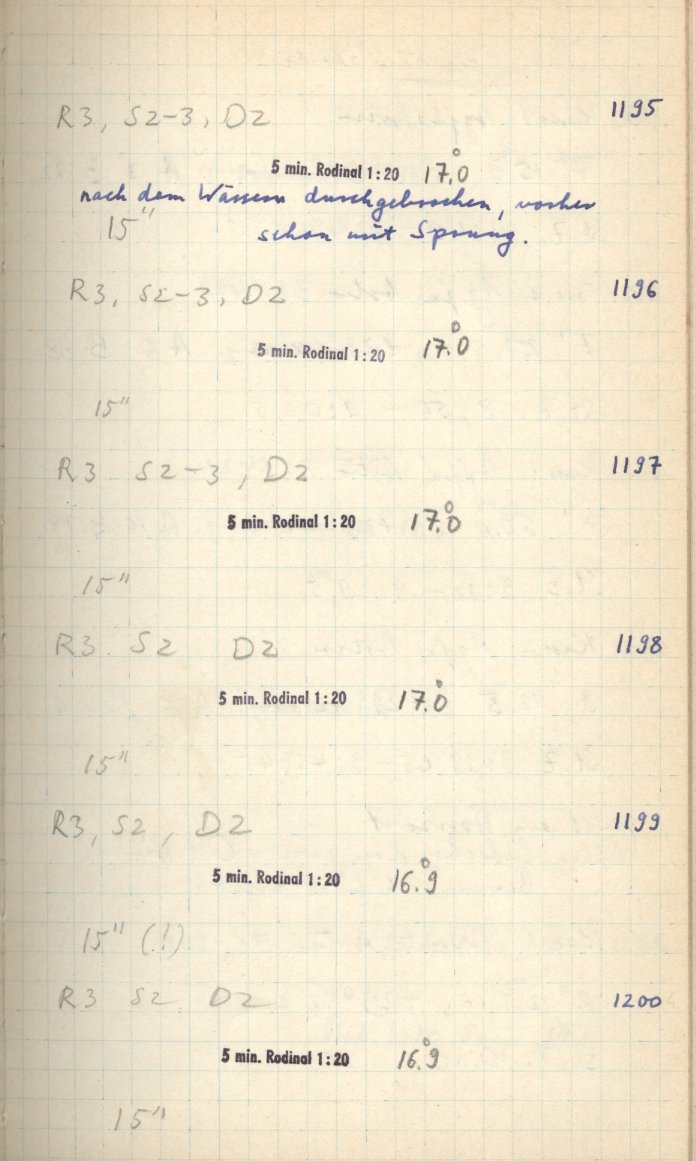 R3, S2-3, D2 1195
5 min. Rodinal 1:20 17.0°
nach dem Wässern durchgebrochen, vorher
15" schon mit Sprung.
R3, S2-3, D2 1196
5 min. Rodinal 1:20 17.0°
15"
R3 S2-3, D2 1197
5 min. Rodinal 1:20 17.0°
15"
R3 S2 D2 1198
5 min. Rodinal 1:20 17.0°
15"
R3, S2, D2 1199
5 min. Rodinal 1:20 16.9°
15" (!)
R3 S2 D2 1200
5 min. Rodinal 1:20 16.9°
15"